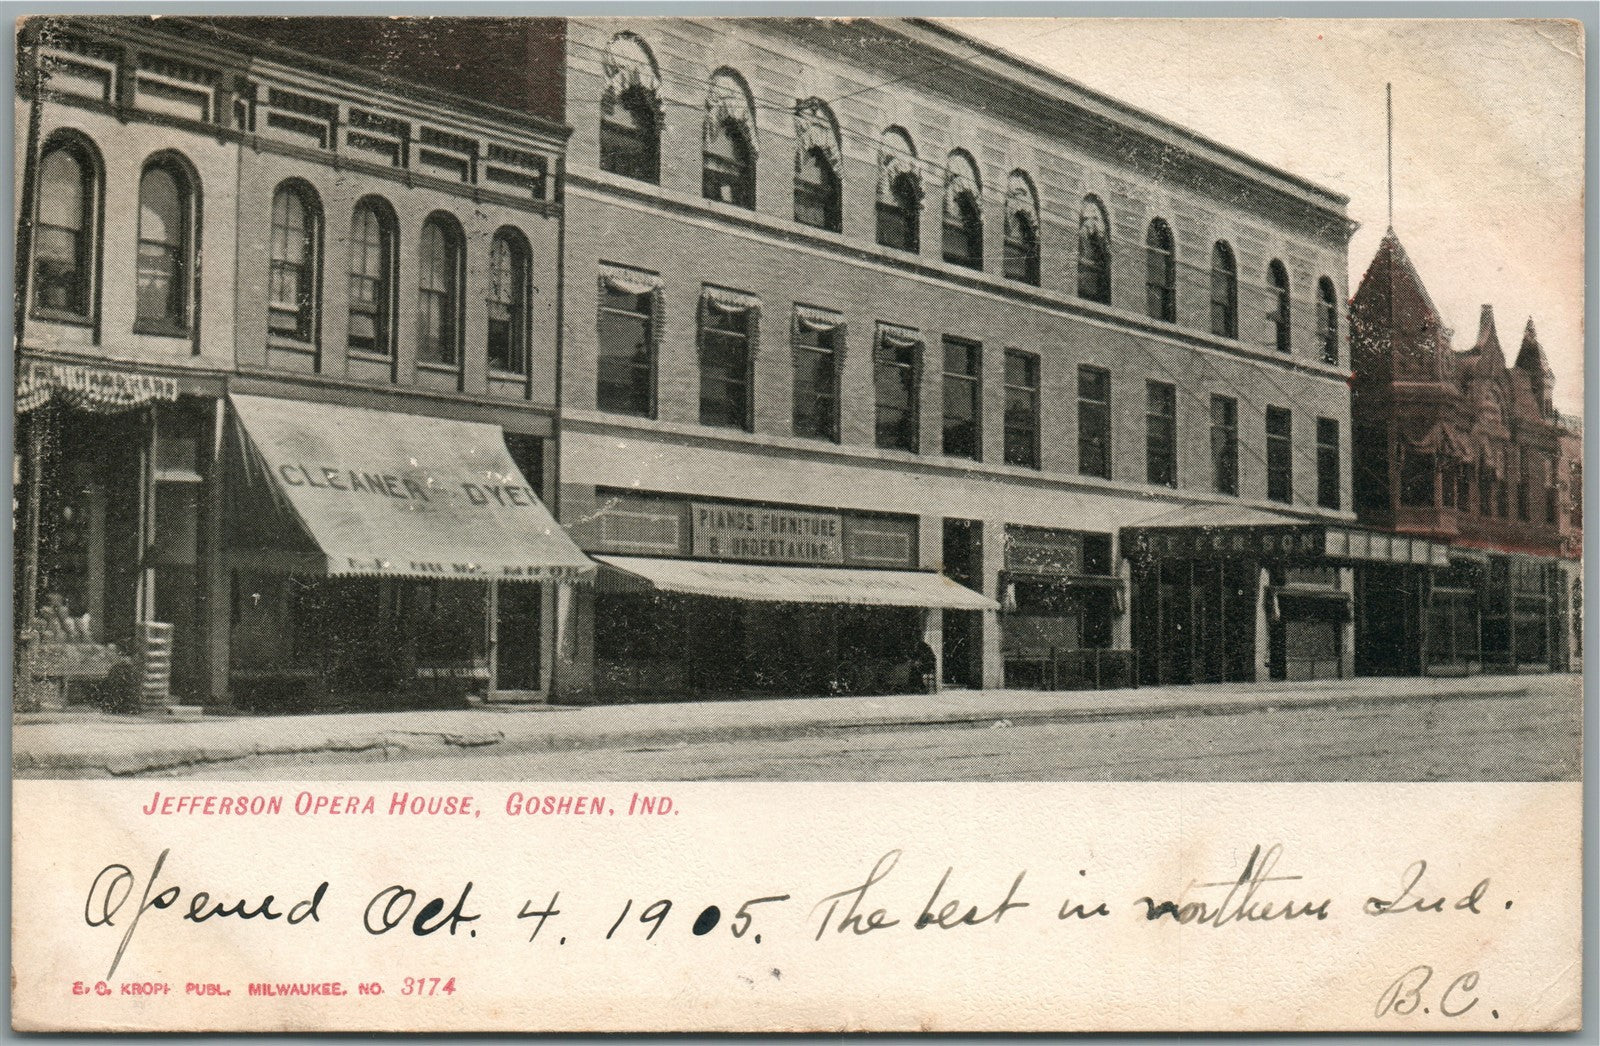 CLEANER DYE
PIANOS, FURNITURE
& UNDERTAKING
JEFFERSON
JEFFERSON OPERA HOUSE, GOSHEN, IND.
Opened Oct. 4. 1905. The best in northern Ind.
B.C.
E. C. KROPF PUBL. MILWAUKEE. NO. 3174